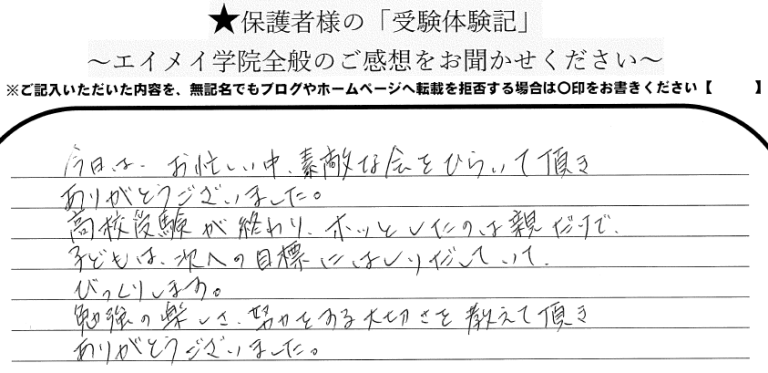 ★保護者様の「受験体験記」
~エイメイ学院全般のご感想をお聞かせください~
※ご記入いただいた内容を、無記名でもブログやホームページへ転載を拒否する場合は〇印をお書きください【　　】
今日は、お忙しい中、素敵な会をひらいて頂き
ありがとうございました。
高校受験が終わり、ホッとしたのは親だけで、
子どもは、次への目標にはしりだしていて、
びっくりします。
勉強の楽しさ、努力をする大切さを教えて頂き
ありがとうございました。